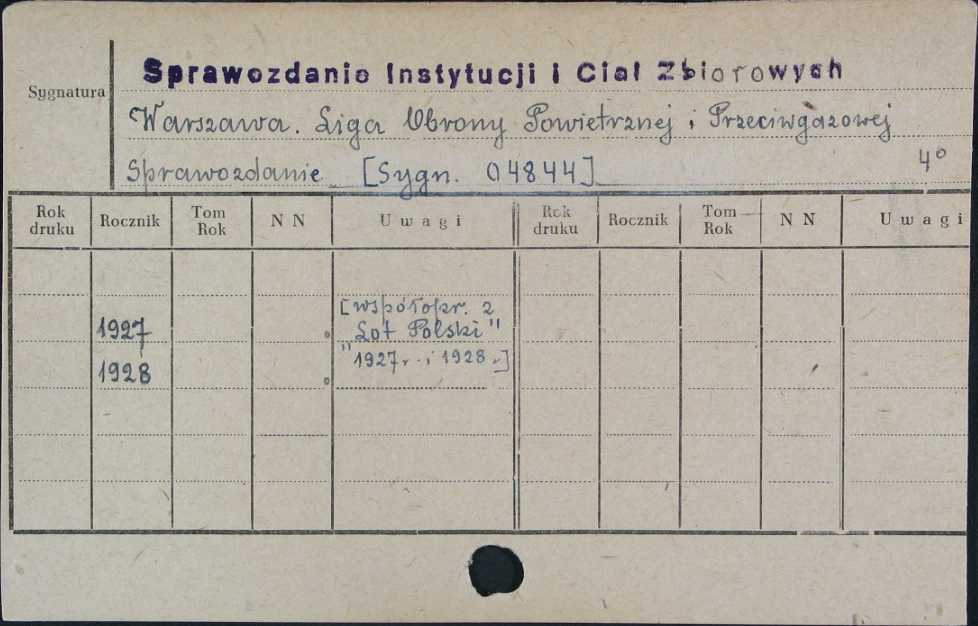 Sprawozdanie Instytucji i Ciał Zbiorowych
Sygnatura
Warszawa. Liga Obrony Powietrznej i Przeciwgazowej
Sprawozdanie [Sygn. 04844] 4°
Rok druku Rocznik Tom Rok N N Uwagi Rok druku Rocznik Tom Rok N N Uwagi
[współopr. z
1927 "Lot Polski"
"1927r. i 1928r.]
1928